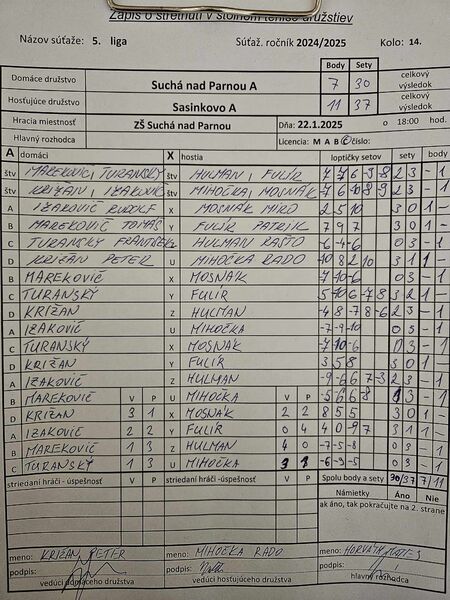 Zápis o stretnutí v stolnom tenise družstiev
Názov súťaže: 5. liga Súťaž. ročník 2024/2025 Kolo: 14.
Body Sety
Domáce družstvo Suchá nad Parnou A 7 30 celkový výsledok
Hosťujúce družstvo Sasinkovo A 11 37 celkový výsledok
Hracia miestnosť ZŠ Suchá nad Parnou Dňa: 22.1.2025 o 18:00 hod.
Hlavný rozhodca Licencia: M A B C číslo:
A domáci X hostia loptičky setov sety body
štv MAREKOVIČ, TURANSKÝ štv HULMAN, FULÍR 2 3 - 1
štv KRIŽAN, IZAKOVIČ štv MIHOČKA, MOSNÁK 2 3 - 1
A IZAKOVIČ RUDOLF X MOSNÁK MIRO 2 5 10 3 0 1 -
B MAREKOVIČ TOMÁŠ Y FULÍR PATRIK 7 9 7 3 0 1 -
C TURANSKÝ FRANTIŠEK Z HULMAN RASŤO -6 -4 -6 0 3 - 1
D KRIŽAN PETER U MIHOČKA RADO -10 8 2 10 3 1 1 -
B MAREKOVIČ X MOSNÁK -7 -10 -6 0 3 - 1
C TURANSKÝ Y FULÍR 5 10 -6 -7 -8 2 3 - 1
D KRIŽAN Z HULMAN -4 8 -7 8 -6 2 3 - 1
A IZAKOVIČ U MIHOČKA -7 -9 -10 0 3 - 1
C TURANSKÝ X MOSNÁK -7 -10 -6 0 3 - 1
D KRIŽAN Y FULÍR 3 5 8 3 0 1 -
A IZAKOVIČ Z HULMAN -9 -6 6 7 -3 2 3 - 1
B MAREKOVIČ V P U MIHOČKA V P 3 - 1
D KRIŽAN 3 1 X MOSNÁK 2 2 8 5 5 3 0 1 -
A IZAKOVIČ 2 2 Y FULÍR 0 4 3 1 1 -
B MAREKOVIČ 1 3 Z HULMAN 4 0 -7 -5 -8 0 3 - 1
C TURANSKÝ 1 3 U MIHOČKA -6 -9 -5 0 3 - 1
striedaní hráči - úspešnosť V P striedaní hráči - úspešnosť V P Spolu body a sety 30/37 7/11
Námietky Áno Nie
ak áno, tak pokračujte na 2. strane
meno: KRIŽAN PETER meno: MIHOČKA RADO meno: HORVÁTH
podpis: podpis: podpis:
vedúci domáceho družstva vedúci hosťujúceho družstva hlavný rozhodca